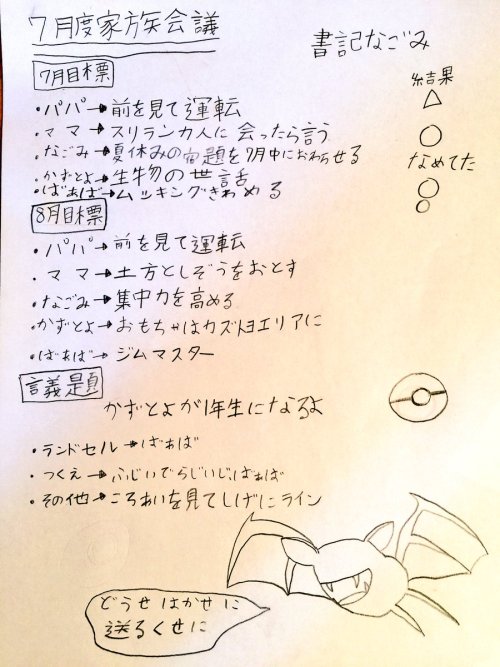 7月度家族会議
書記なごみ
7月目標
結果
・パパ→前を見て運転 △
・ママ→スリランカ人に会ったら言う ○
・なごみ→夏休みの宿題を7月中におわらせる なめてた
・かずとよ→生物の世話 ○
・ばぁば→ムッキングきわめる ○
8月目標
・パパ→前を見て運転
・ママ→土方としぞうをおとす
・なごみ→集中力を高める
・かずとよ→おもちゃはカズトヨエリアに
・ばぁば→ジムマスター
議題
かずとよが1年生になるよ
・ランドセル→ばぁば
・つくえ→ふじいでらじいじ、ばぁば
・その他→ころあいを見てしげにライン
どうせはかせに
送るくせに